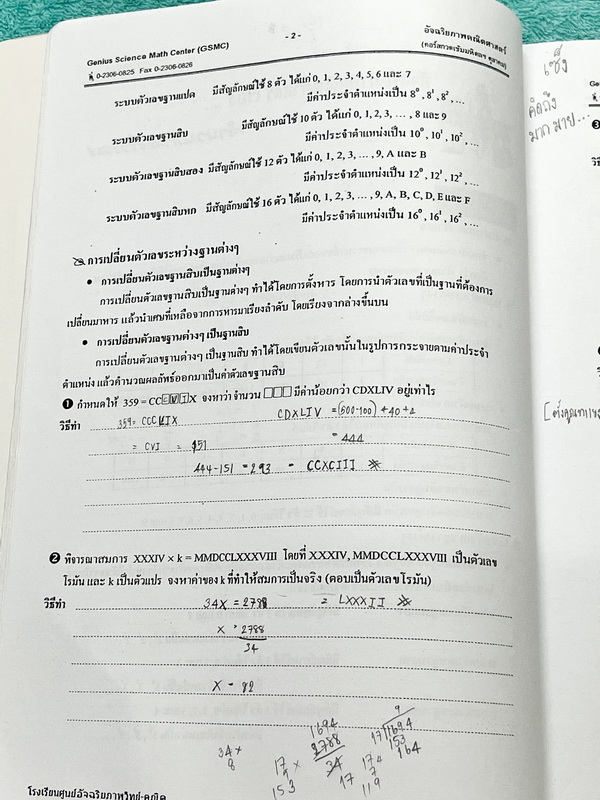 Genius Science Math Center (GSMC)
0-2306-0825 Fax 0-2306-0826
- 2 -
อัจฉริยภาพคณิตศาสตร์
ระบบตัวเลขฐานแปด มีสัญลักษณ์ใช้ 8 ตัว ได้แก่ 0, 1, 2, 3, 4, 5, 6 และ 7
มีค่าประจำตำแหน่งเป็น 8⁰, 8¹, 8², ...
ระบบตัวเลขฐานสิบ มีสัญลักษณ์ใช้ 10 ตัว ได้แก่ 0, 1, 2, 3, ... , 8 และ 9
มีค่าประจำตำแหน่งเป็น 10⁰, 10¹, 10², ...
ระบบตัวเลขฐานสิบสอง มีสัญลักษณ์ใช้ 12 ตัว ได้แก่ 0, 1, 2, 3, ... , 9, A และ B
มีค่าประจำตำแหน่งเป็น 12⁰, 12¹, 12², ...
ระบบตัวเลขฐานสิบหก มีสัญลักษณ์ใช้ 16 ตัว ได้แก่ 0, 1, 2, 3, ... , 9, A, B, C, D, E และ F
มีค่าประจำตำแหน่งเป็น 16⁰, 16¹, 16², ...
การเปลี่ยนตัวเลขระหว่างฐานต่างๆ
• การเปลี่ยนตัวเลขฐานสิบเป็นฐานต่างๆ
การเปลี่ยนตัวเลขฐานสิบเป็นฐานต่างๆ ทำได้โดยการตั้งหาร โดยการนำตัวเลขที่เป็นฐานที่ต้องการ
เปลี่ยนมาหาร แล้วนำเศษที่เหลือจากการหารมาเรียงลำดับ โดยเรียงจากล่างขึ้นบน
• การเปลี่ยนตัวเลขฐานต่างๆ เป็นฐานสิบ
การเปลี่ยนตัวเลขฐานต่างๆ เป็นฐานสิบ ทำได้โดยเขียนตัวเลขนั้นในรูปการกระจายตามค่าประจำ
ตำแหน่ง แล้วคำนวณผลลัพธ์ออกมาเป็นค่าตัวเลขฐานสิบ
❶ กำหนดให้ 359 = CC□□□X จงหาว่าจำนวน □□□ มีค่าน้อยกว่า CDXLIV อยู่เท่าไร
วิธีทำ 359 = CCCLIX CDXLIV = (500-100) + 40 + 4
= CVI = 151 = 444
444 - 151 = 293 = CCXCIII
❷ พิจารณาสมการ XXXIV × k = MMDCCLXXXVIII โดยที่ XXXIV, MMDCCLXXXVIII เป็นตัวเลข
โรมัน และ k เป็นตัวแปร จงหาค่าของ k ที่ทำให้สมการเป็นจริง (ตอบเป็นตัวเลขโรมัน)
วิธีทำ 34X = 2788 = LXXXII
X = 2788
34
X = 82
34 ×
8
17 ×
9
153
1694
2788
34
17
9
17 1694
153
164
17
7
119
โรงเรียนศูนย์อัจฉริยภาพวิทย์-คณิต
เซ็ง
คิดถึง
มากมาย...